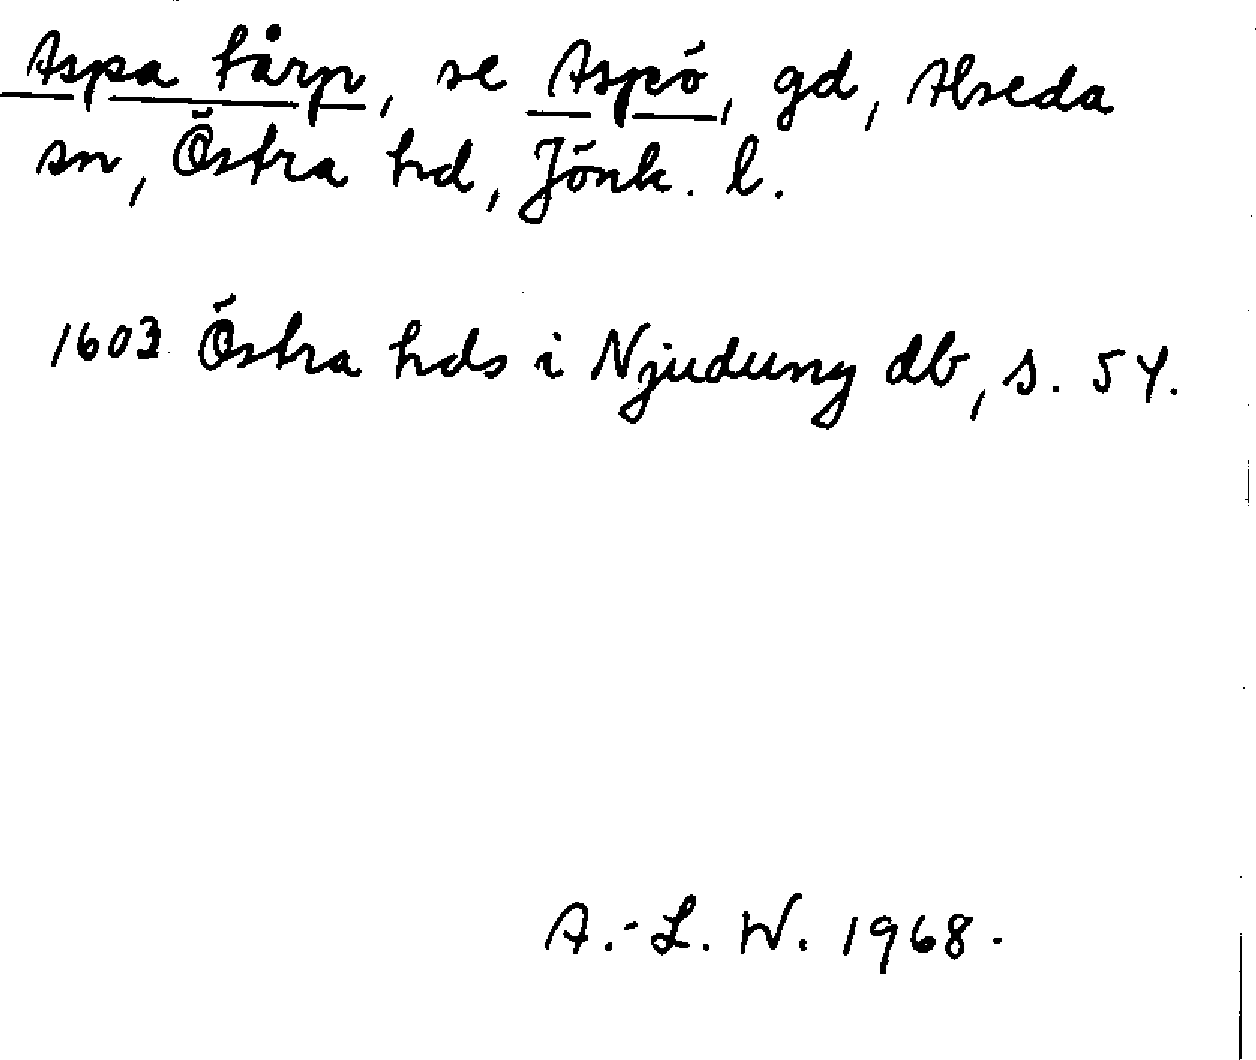 Aspa tårp, se Aspö, gd, Alseda
sn, Östra hd, Jönk. l.
1603 Östra hds i Njudung db, s. 54.
A.-L. W. 1968.